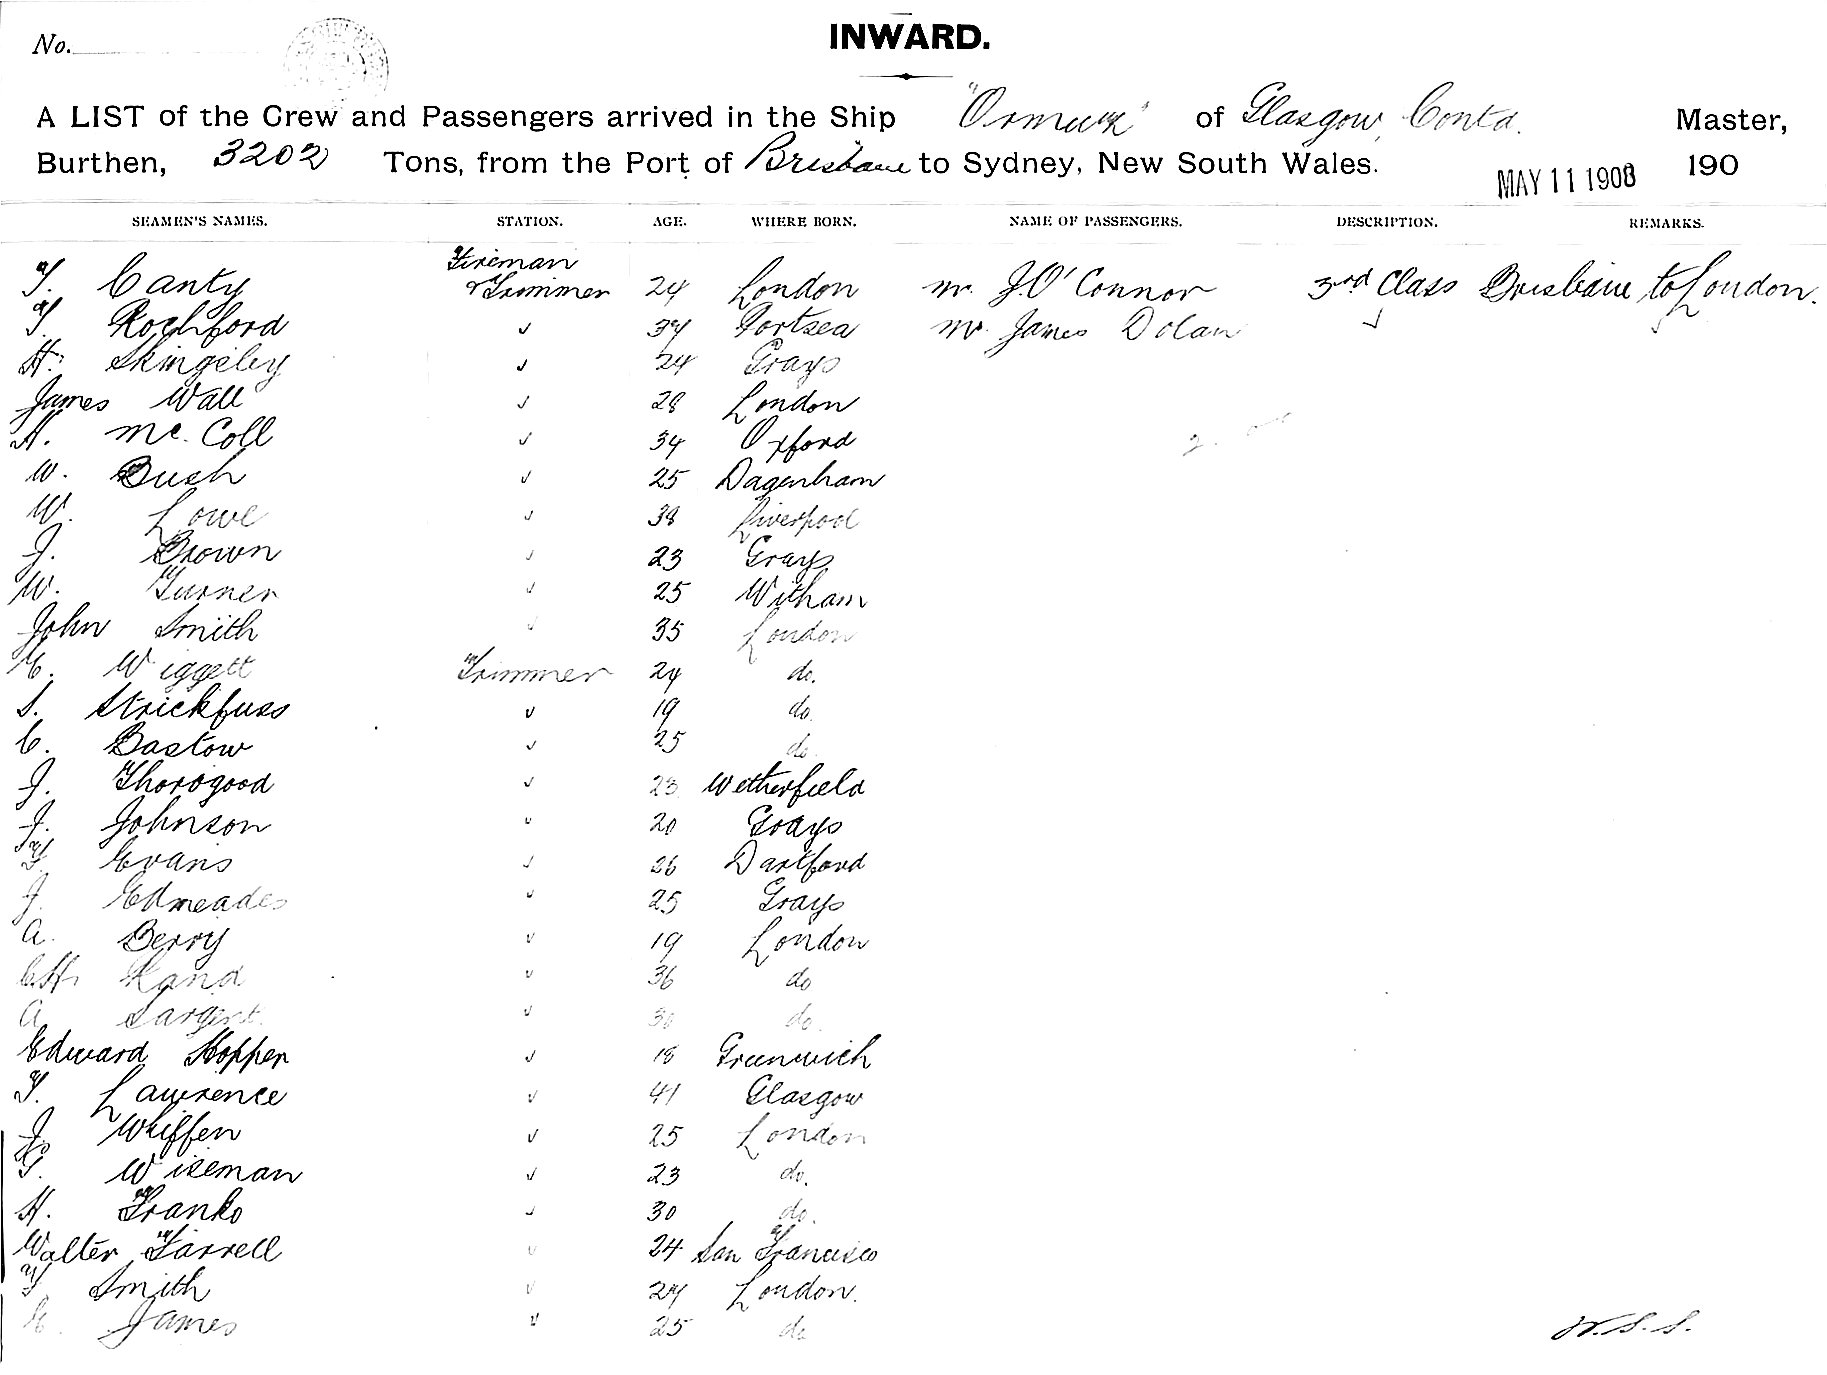 No.
INWARD.
A LIST of the Crew and Passengers arrived in the Ship "Ormuz" of Glasgow, Contd. Master,
Burthen, 3202 Tons, from the Port of Brisbane to Sydney, New South Wales. MAY 11 1908 190
SEAMEN'S NAMES. STATION. AGE. WHERE BORN. NAME OF PASSENGERS. DESCRIPTION. REMARKS.
T. Canty Fireman & Trimmer 24 London Mr. J. O'Connor 3rd Class Brisbane to London.
T. Rochford ✓ 34 Portsea Mr. James Dolan ✓ ✓
H. Skingeley ✓ 24 Grays
James Wall ✓ 28 London
A. Mc. Coll ✓ 34 Oxford
W. Bush ✓ 25 Dagenham
W. Lowe ✓ 38 Liverpool
J. Brown ✓ 23 Grays
W. Turner ✓ 25 Witham
John Smith ✓ 35 London
E. Wiggett Trimmer 24 do.
S. Strickfuss ✓ 19 do.
C. Bastow ✓ 25 do.
J. Thorogood ✓ 23 Wetherfield
J. Johnson " 20 Grays
F. Evans ✓ 26 Dartford
J. Edmeades " 25 Grays
A. Berry " 19 London
C.H. Rand " 36 do
A. Sargent " 30 do.
Edward Hopper ✓ 18 Greenwich
T. Lawrence ✓ 41 Glasgow
J. Whiffen ✓ 25 London
G. Wiseman ✓ 23 do.
H. Franks ✓ 30 do.
Walter Farrell ✓ 24 San Francisco
F Smith ✓ 24 London.
E. James " 25 do
W.S.S.